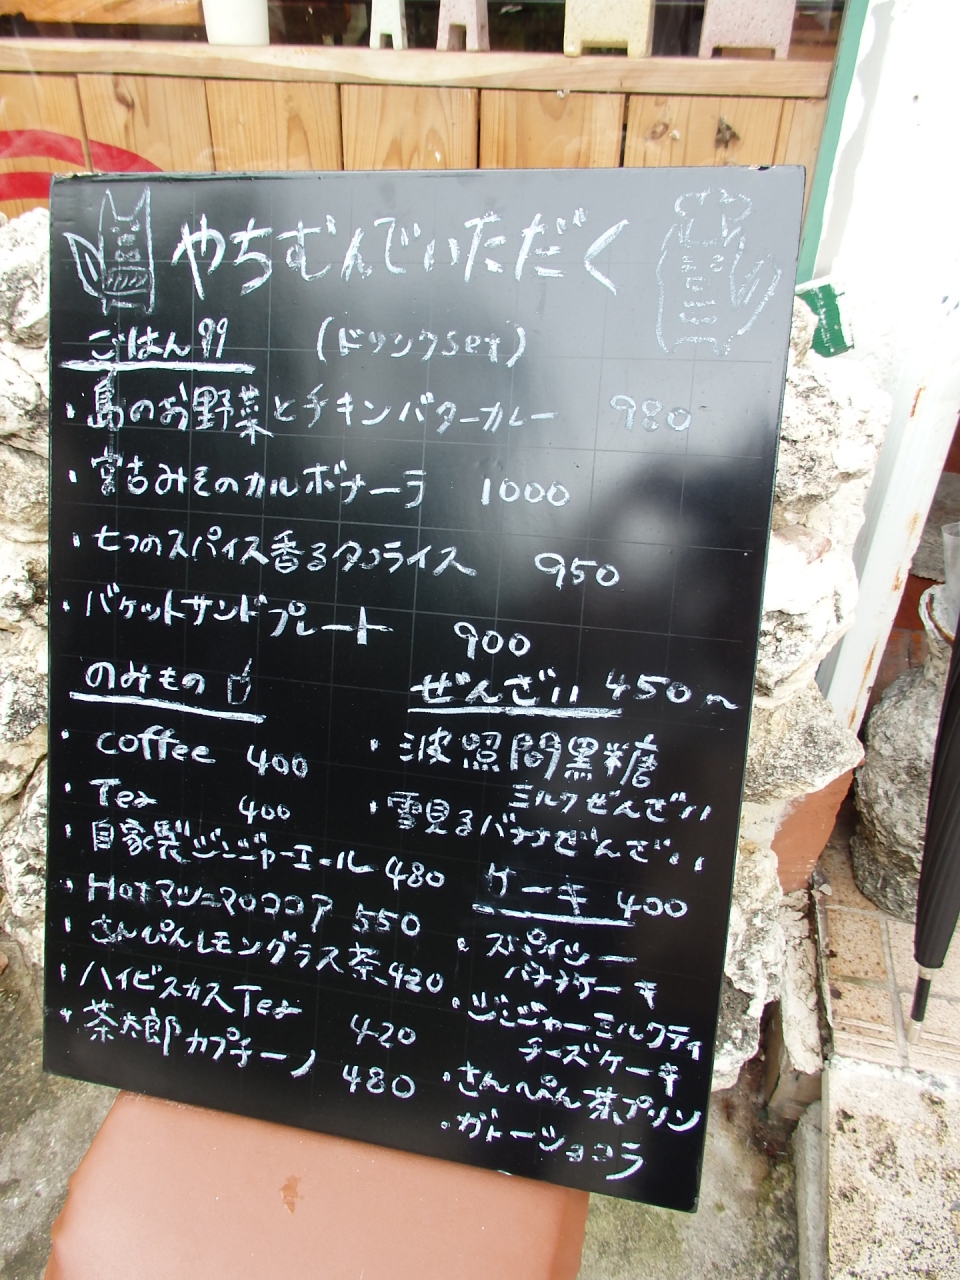 やちむんでいただく
ごはん (ドリンクset)
・島のお野菜とチキンバターカレー 980
・宮古みそのカルボナーラ 1000
・七つのスパイス香るタコライス 950
・バケットサンドプレート 900
のみもの
・coffee 400
・Tea 400
・自家製ジンジャーエール 480
・Hotマシュマロココア 550
・さんぴんレモングラス茶 420
・ハイビスカスTea 420
・茶太郎カプチーノ 480
ぜんざい 450〜
・波照間黒糖
ミルクぜんざい
・雪見るバナナぜんざい
ケーキ 400
・スパイシー
バナナケーキ
・ジンジャーミルクティ
チーズケーキ
・さんぴん茶プリン
・ガトーショコラ